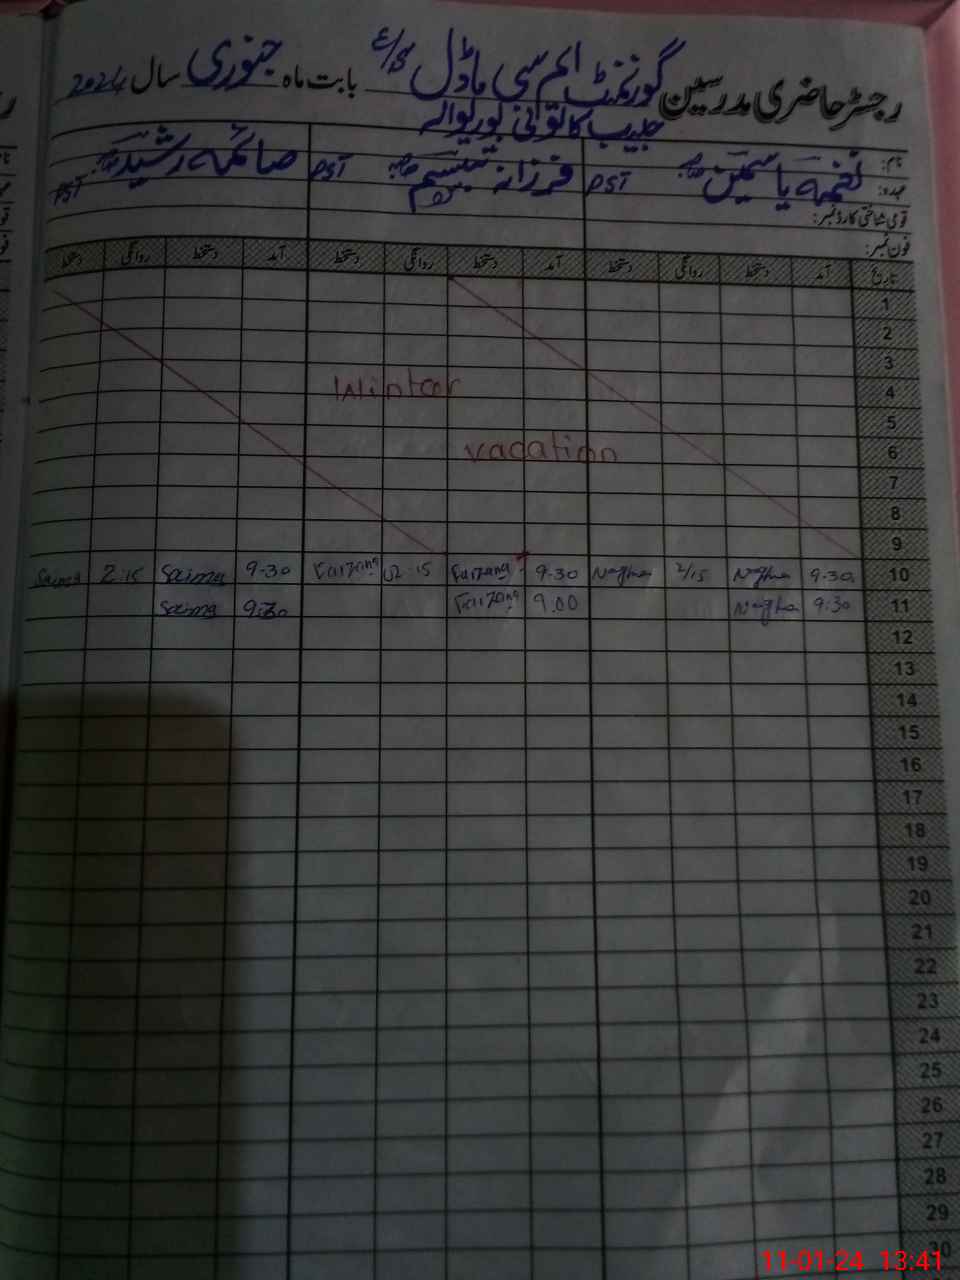 رجسٹر حاضری مدرسین گورنمنٹ ایم سی ماڈل بابت ماہ جنوری سال 2024
حبیب کالونی بوریوالہ
نام: نغمہ یاسمین فرزانہ تبسم صائمہ رشید
عہدہ: PST PST PST
قومی شناختی کارڈ نمبر:
فون نمبر:
تاریخ آمد دستخط روانگی دستخط آمد دستخط روانگی دستخط آمد دستخط روانگی دستخط
1
2
3
Winter 4
5
vacation 6
7
8
9
Saima 2:15 Saima 9-30 Farzana 02:15 Farzana 9-30 Naghma 2/15 Naghma 9-30 10
Saima 9:30 Farzana 9.00 Naghma 9:30 11
12
13
14
15
16
17
18
19
20
21
22
23
24
25
26
27
28
29
30
11-01-24 13:41